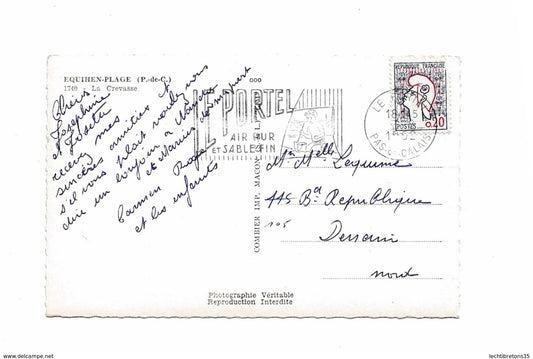 EQUIHEN-PLAGE (P.-de-C.)
1740 La Crevasse
Chère
Joséphine
et Odette
recevez mes
sincères amitiés et
s'il vous plait voulez vous
dire un bonjour a
et Marius
Carmen Roger
et les enfants
LE PORTEL
AIR PUR
ET SABLE FIN
LE
PAS-DE-CALAIS
REPUBLIQUE FRANÇAISE
POSTES 0,20
COMBIER IMP. MACON
Melle Lequime
445 Bd République
105
Denain
nord
Photographie Véritable
Reproduction Interdite
https://www.delcampe.net
lechtibretons35